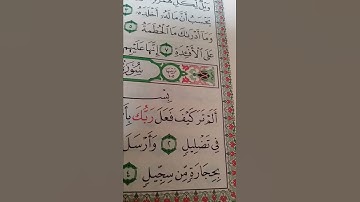 وَيْلٌ لِّكُلِّ هُمَزَةٍ
يَحْسَبُ أَنَّ مَالَهُۥٓ أَخْلَدَهُۥ ٣
وَمَآ أَدْرَىٰكَ مَا ٱلْحُطَمَةُ ٥
عَلَى ٱلْأَفْـِٔدَةِ ٧ إِنَّهَا عَلَيْهِم
سُورَة
بِسْ
أَلَمْ تَرَ كَيْفَ فَعَلَ رَبُّكَ بِأَ
فِى تَضْلِيلٍ ٢ وَأَرْسَلَ
بِحِجَارَةٍ مِّن سِجِّيلٍ ٤